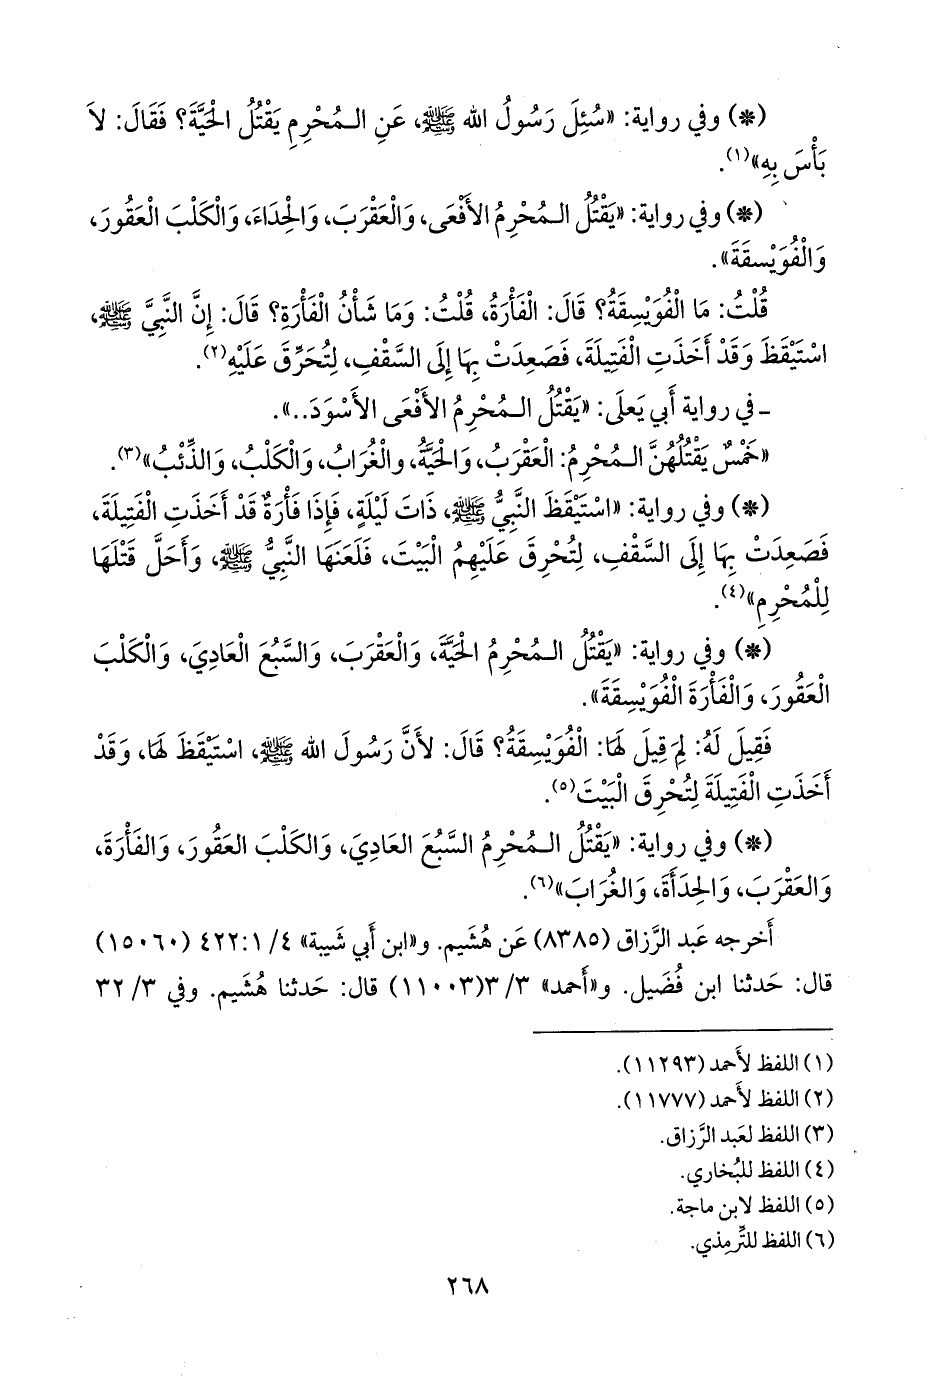 (*) وفي رواية: «سُئِلَ رَسُولُ الله ﷺ، عَنِ الـمُحْرِمِ يَقْتُلُ الْحَيَّةَ؟ فَقَالَ: لاَ
بَأْسَ بِهِ»(١).
(*) وفي رواية: «يَقْتُلُ الـمُحْرِمُ الأَفْعَى، وَالْعَقْرَبَ، وَالْحِدَاءَ، وَالْكَلْبَ الْعَقُورَ،
وَالْفُوَيْسِقَةَ».
قُلْتُ: مَا الْفُوَيْسِقَةُ؟ قَالَ: الْفَأْرَةُ، قُلْتُ: وَمَا شَأْنُ الْفَأْرَةِ؟ قَالَ: إِنَّ النَّبِيَّ ﷺ،
اسْتَيْقَظَ وَقَدْ أَخَذَتِ الْفَتِيلَةَ، فَصَعِدَتْ بِهَا إِلَى السَّقْفِ، لِتُحَرِّقَ عَلَيْهِ(٢).
ـ في رواية أَبي يَعلَى: «يَقْتُلُ الـمُحْرِمُ الأَفْعَى الأَسْوَدَ..».
«خَمْسٌ يَقْتُلُهُنَّ الـمُحْرِمُ: الْعَقْرَبُ، وَالْحَيَّةُ، والْغُرَابُ، وَالْكَلْبُ، وَالذِّئْبُ»(٣).
(*) وفي رواية: «اسْتَيْقَظَ النَّبِيُّ ﷺ، ذَاتَ لَيْلَةٍ، فَإِذَا فَأْرَةٌ قَدْ أَخَذَتِ الْفَتِيلَةَ،
فَصَعِدَتْ بِهَا إِلَى السَّقْفِ، لِتُحْرِقَ عَلَيْهِمُ الْبَيْتَ، فَلَعَنَهَا النَّبِيُّ ﷺ، وَأَحَلَّ قَتْلَهَا
لِلْمُحْرِمِ»(٤).
(*) وفي رواية: «يَقْتُلُ الـمُحْرِمُ الْحَيَّةَ، وَالْعَقْرَبَ، وَالسَّبُعَ الْعَادِيَ، وَالْكَلْبَ
الْعَقُورَ، وَالْفَأْرَةَ الْفُوَيْسِقَةَ».
فَقِيلَ لَهُ: لِمَ قِيلَ لَهَا: الْفُوَيْسِقَةُ؟ قَالَ: لأَنَّ رَسُولَ الله ﷺ، اسْتَيْقَظَ لَهَا، وَقَدْ
أَخَذَتِ الْفَتِيلَةَ لِتُحْرِقَ الْبَيْتَ(٥).
(*) وفي رواية: «يَقْتُلُ الـمُحْرِمُ السَّبُعَ العَادِيَ، وَالكَلْبَ العَقُورَ، وَالفَأْرَةَ،
وَالعَقْرَبَ، وَالحِدَأَةَ، وَالغُرَابَ»(٦).
أَخرجه عَبد الرَّزاق (٨٣٨٥) عَن هُشَيم. و«ابن أَبي شَيبة» ٤/ ١: ٤٢٢ (١٥٠٦٠)
قال: حَدثنا ابن فُضَيل. و«أَحمد» ٣/ ٣(١١٠٠٣) قال: حَدثنا هُشَيم. وفي ٣/ ٣٢
(١) اللفظ لأَحمد (١١٢٩٣).
(٢) اللفظ لأَحمد (١١٧٧٧).
(٣) اللفظ لعَبد الرَّزاق.
(٤) اللفظ للبُخاري.
(٥) اللفظ لابن ماجة.
(٦) اللفظ للتِّرمِذي.
٢٦٨